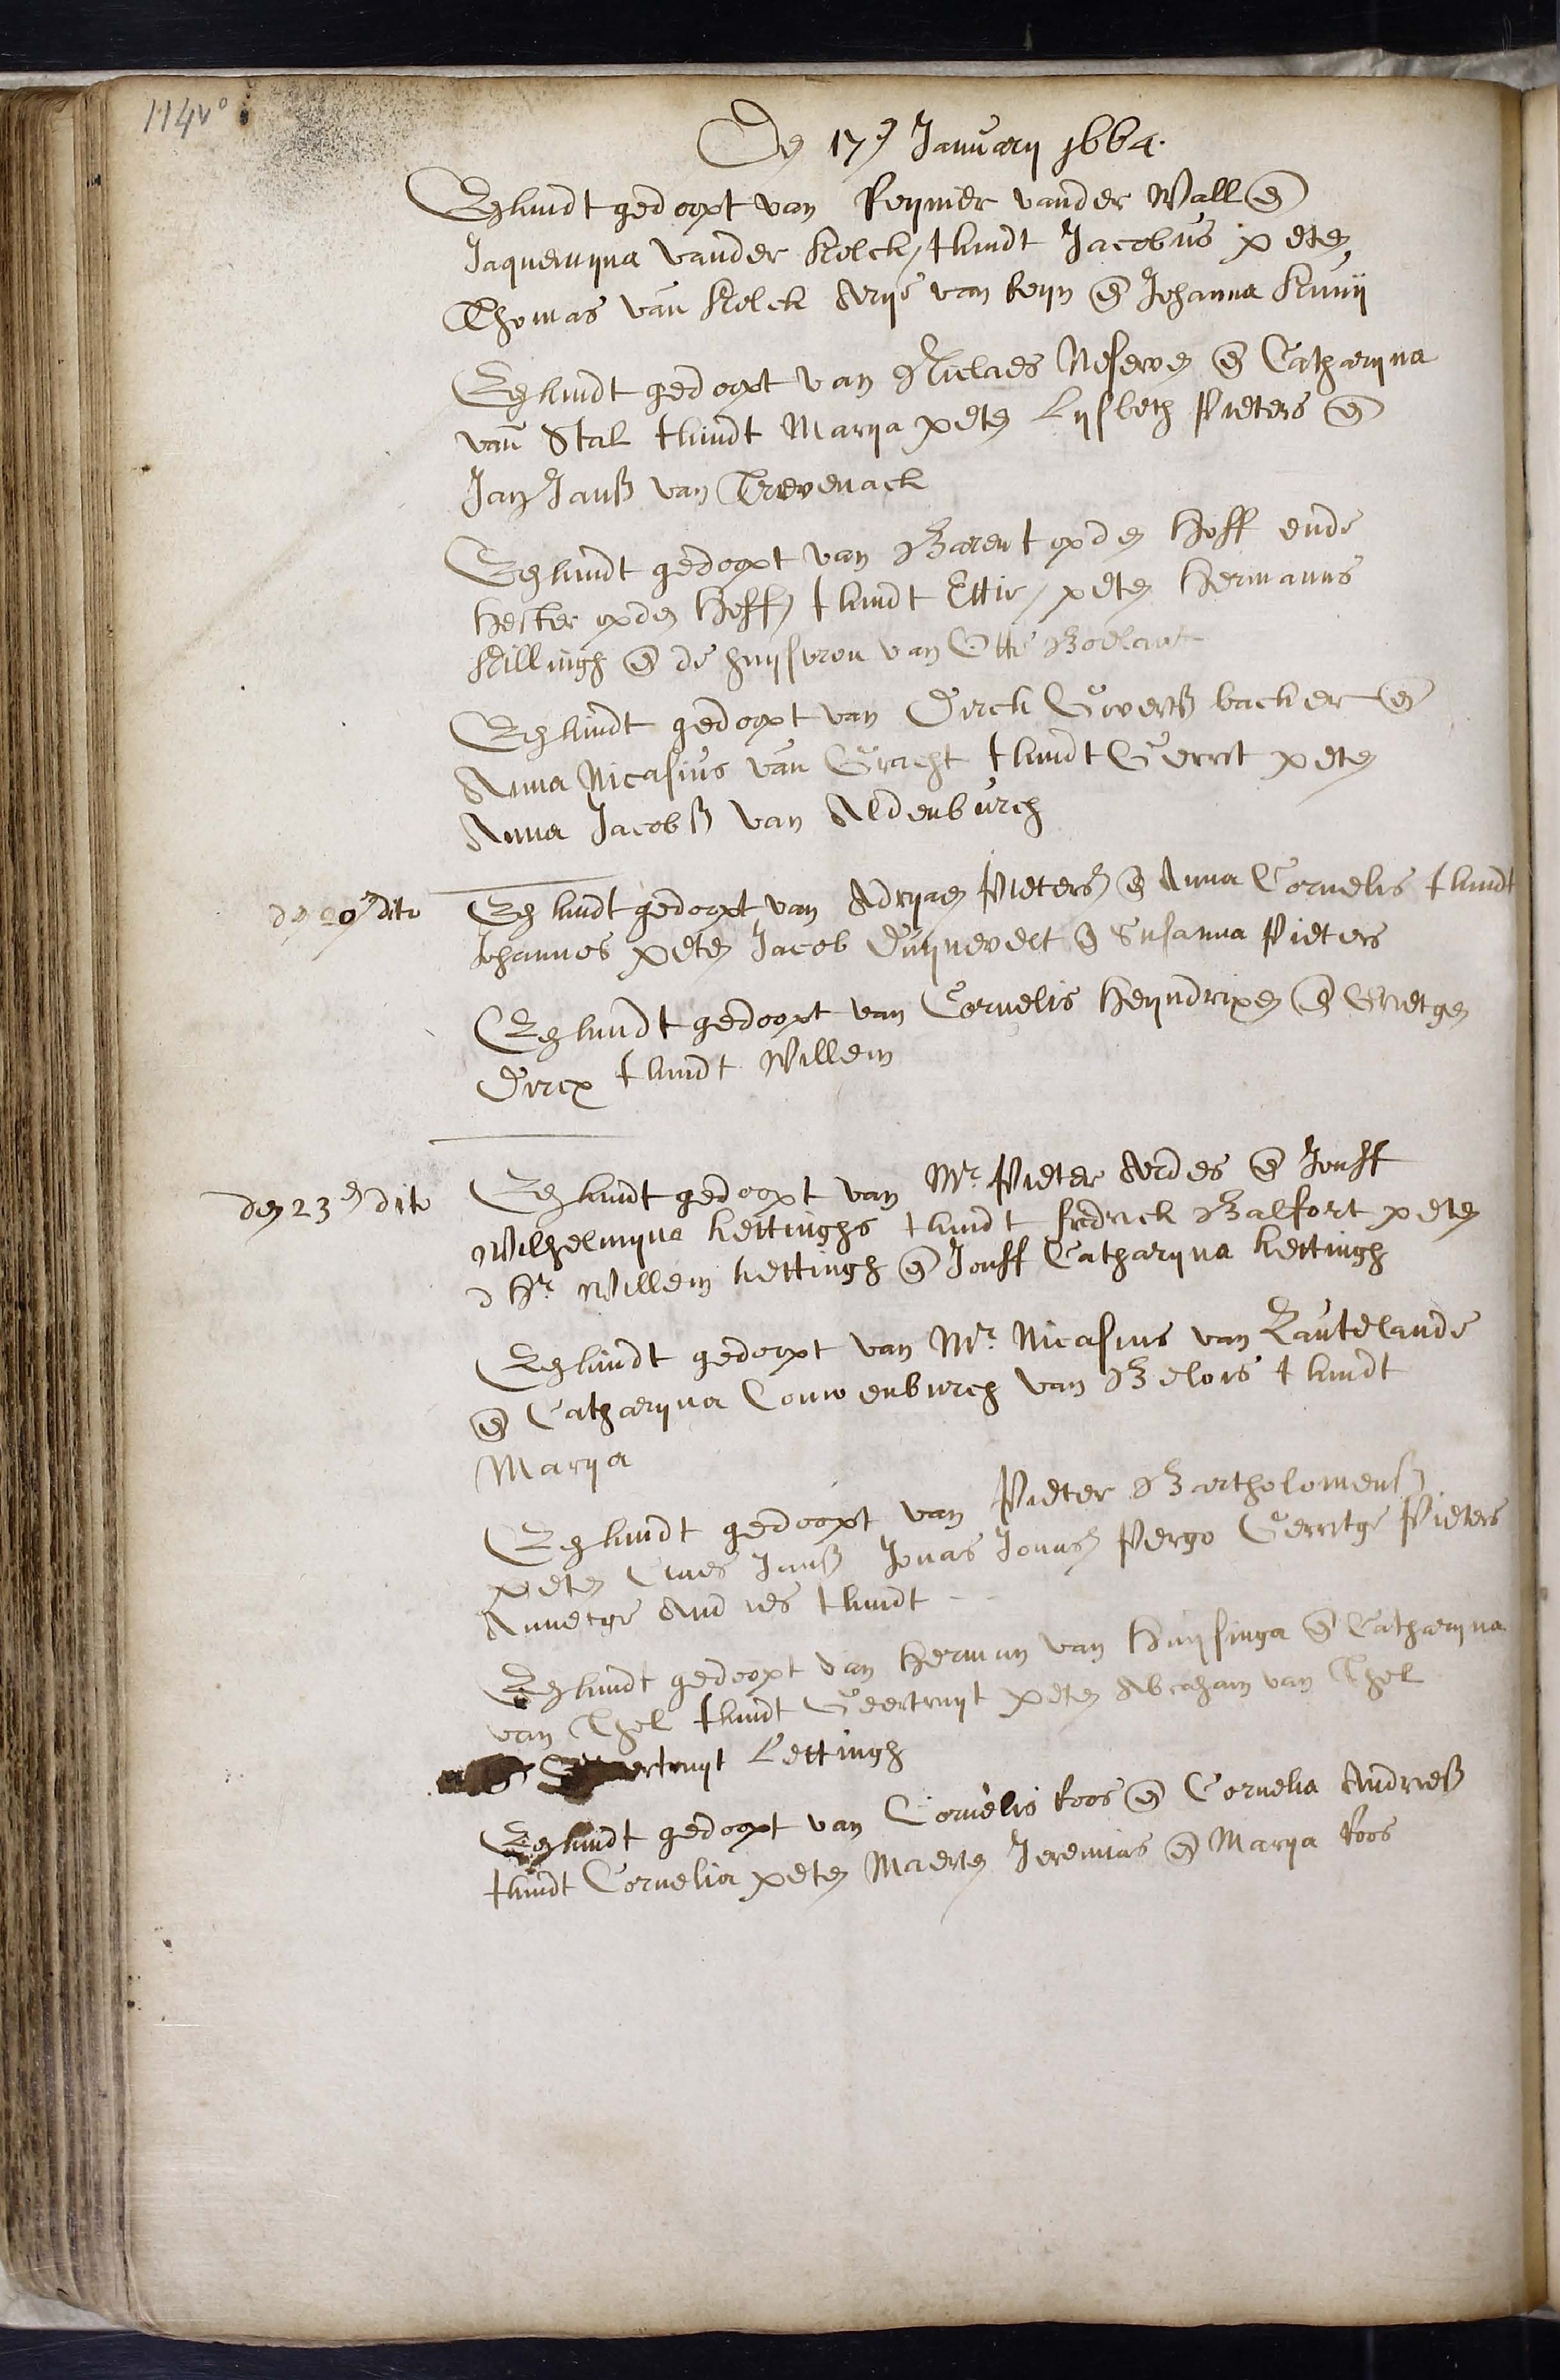 114v°
Den 17en January 1664.
Een kindt gedoopt van Reynier vander Wall en
Jaquemyna vander Kolck, t kindt Jacobus peten
Thomas van Kolck Arye van Reyn en Johanna
Een kindt gedoopt van Niclaes en Catharyna
van Stal t kindt Marya peten Lysbeth Pieters en
Jan Janss van Trevenack
Een kindt gedoopt van Barent op den Hoff ende
Hester op den Hoff, t kindt Ettie, peten Hermanus
Killingh en de huysvrou van Otte Boelant
Een kindt gedoopt van Dirck Goverts backer en
Anna Nicasius van Gracht t kindt Gerrit peten
Anna Jacobss van Aldenburch
den 20en dito Een kindt gedoopt van Adryaen Pieters en Anna Cornelis t kindt
Johannes peten Jacob Duynevelt en Susanna Pieters
Een kindt gedoopt van Cornelis Heyndrixen en Grietgen
Dircx t kindt Willem
den 23en dito Een kindt gedoopt van Mr. Pieter Ardes en Jouff
Wilhelmyna kettinghs t kindt fredrick Balfort peten
d Hr Willem kettingh en Jouff Catharyna kettingh
Een kindt gedoopt van Mr. Nicasius van Lautelande
en Catharyna Couwenburch van Belois t kindt
Marya
Een kindt gedoopt van Pieter Bartholomeuss
peten Janss Jonas Jonas Pergo Gerritge Pieters
Annetge Andries t kindt
Een kindt gedoopt van Herman van Huysinga en Catharyna
van Thol t kindt Geertruyt peten Abraham van Thol
en Geertruyt Lettingh
Een kindt gedoopt van Cornelis Roos en Cornelia Andriess
t kindt Cornelia peten Maerten Jeremias en Marya Roos